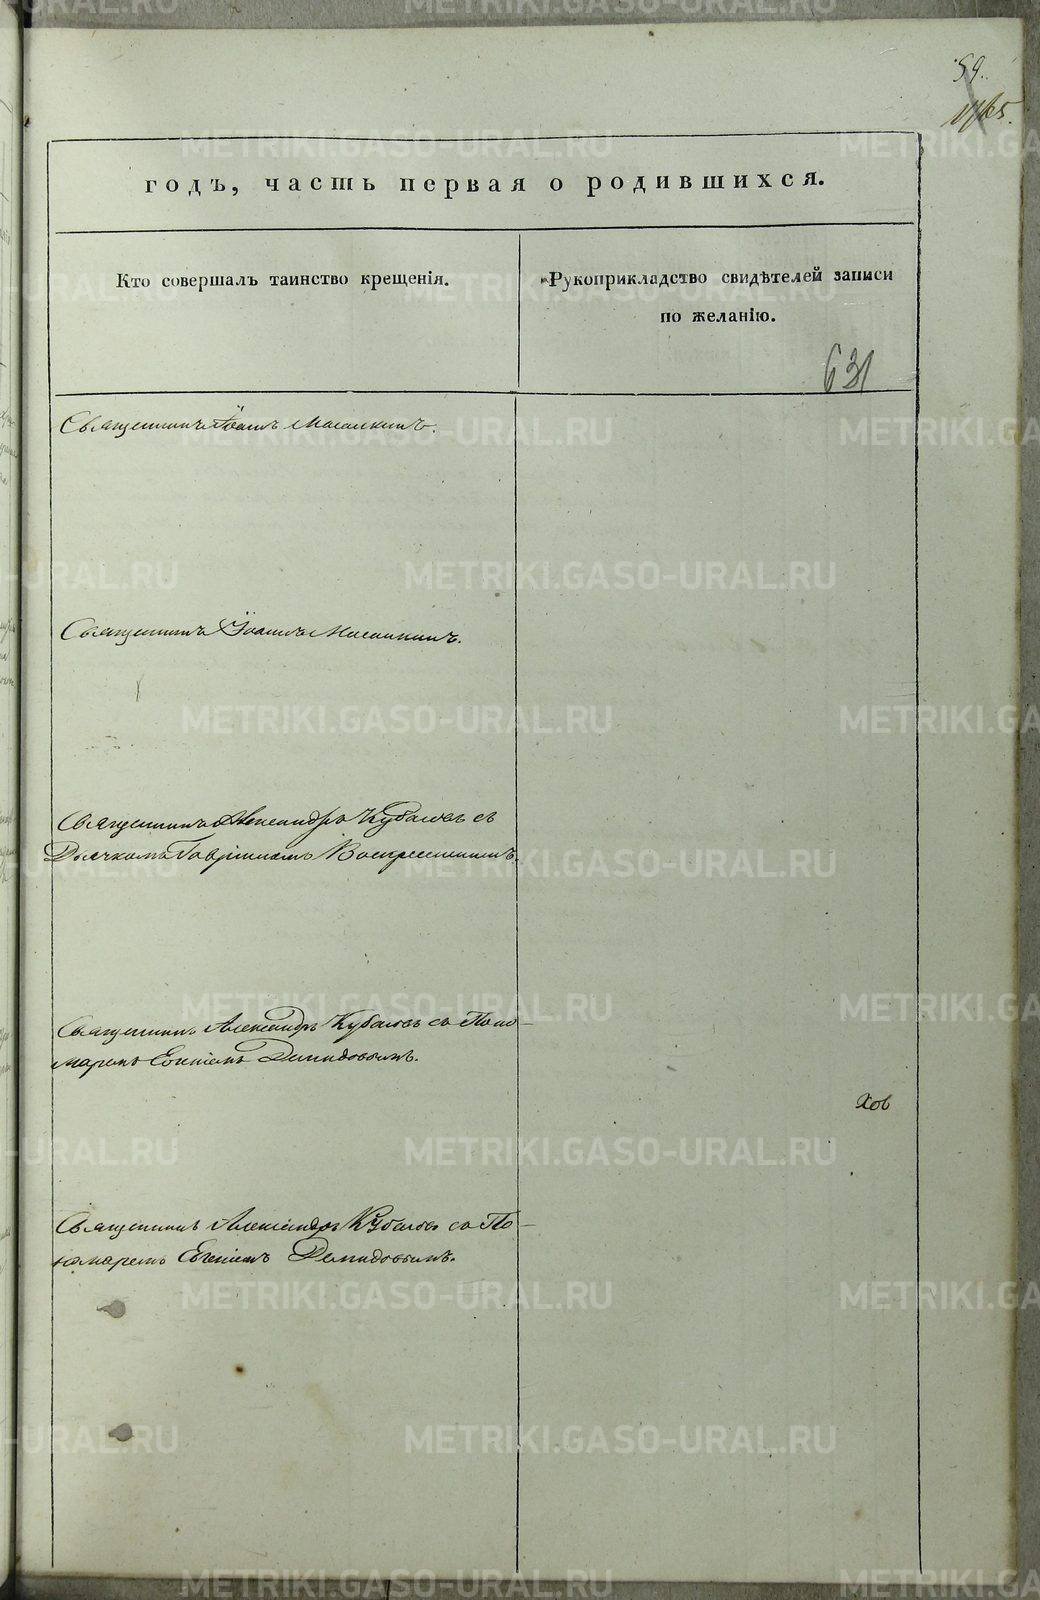 59.
годъ, часть первая о родившихся.
Кто совершалъ таинство крещенія.
Рукоприкладство свидѣтелей записи
по желанію.
631
Священникъ Іоаннъ
Священникъ Іоаннъ
Священникъ Александръ Кубасовъ съ
Дьячкомъ Гавріиломъ Воскресенскимъ.
Священникъ Александръ Кубасовъ со Поно-
маремъ Евгеніемъ Демидовымъ.
Хов
Священникъ Александръ Кубасовъ со По-
номаремъ Евгеніемъ Демидовымъ.
METRIKI.GASO-URAL.RU